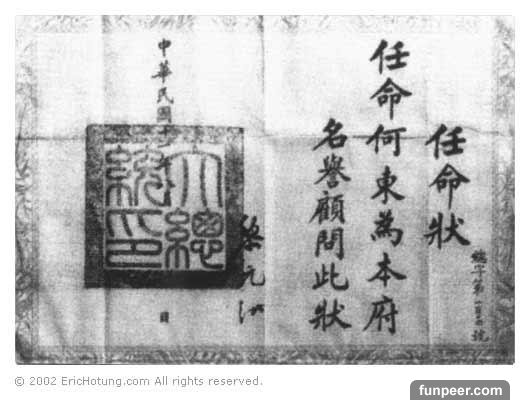 任命狀
任命何東為本府
名譽顧問此狀
黎元洪
中華民國十
日
大總
統印
© 2002 EricHotung.com All rights reserved.
funpeer.com